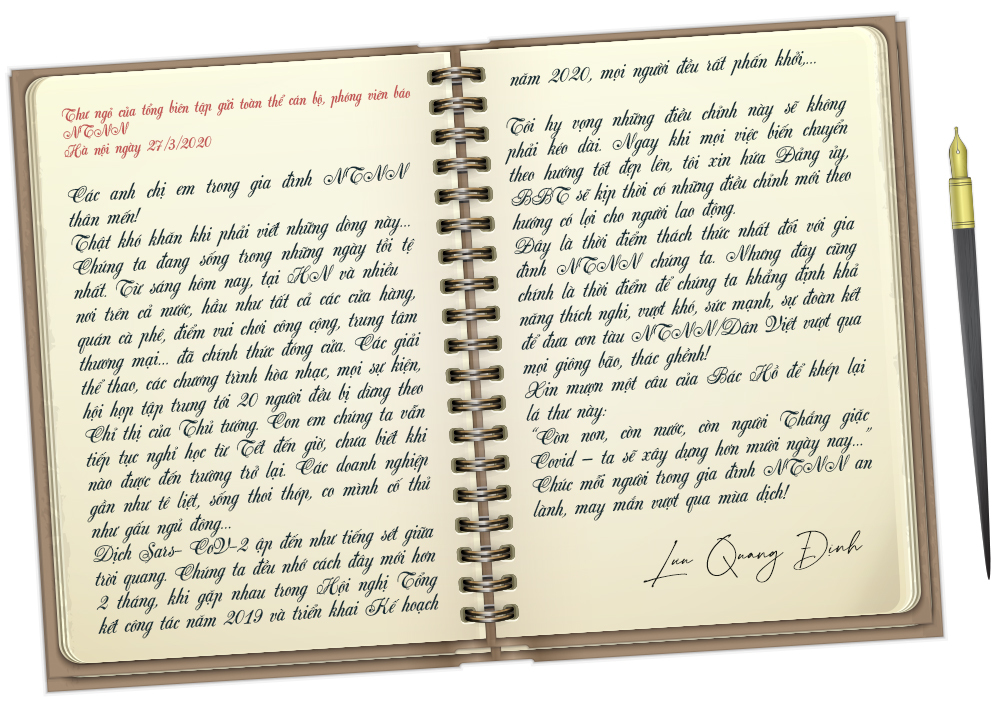 Thư ngỏ của tổng biên tập gửi toàn thể cán bộ, phóng viên báo
NTNN
Hà nội ngày 27/3/2020
Các anh chị em trong gia đình NTNN
thân mến!
Thật khó khăn khi phải viết những dòng này...
Chúng ta đang sống trong những ngày tồi tệ
nhất. Từ sáng hôm nay, tại HN và nhiều
nơi trên cả nước, hầu như tất cả các cửa hàng,
quán cà phê, điểm vui chơi công cộng, trung tâm
thương mại... đã chính thức đóng cửa. Các giải
thể thao, các chương trình hòa nhạc, mọi sự kiện,
hội họp tập trung tới 20 người đều bị dừng theo
Chỉ thị của Thủ tướng. Con em chúng ta vẫn
tiếp tục nghỉ học từ Tết đến giờ, chưa biết khi
nào được đến trường trở lại. Các doanh nghiệp
gần như tê liệt, sống thoi thóp, co mình cố thủ
như gấu ngủ đông...
Dịch Sars- CoV-2 ập đến như tiếng sét giữa
trời quang. Chúng ta đều nhớ cách đây mới hơn
2 tháng, khi gặp nhau trong Hội nghị Tổng
kết công tác năm 2019 và triển khai Kế hoạch
năm 2020, mọi người đều rất phấn khởi,...
Tôi hy vọng những điều chỉnh này sẽ không
phải kéo dài. Ngay khi mọi việc biến chuyển
theo hướng tốt đẹp lên, tôi xin hứa Đảng ủy,
BBT sẽ kịp thời có những điều chỉnh mới theo
hướng có lợi cho người lao động.
Đây là thời điểm thách thức nhất đối với gia
đình NTNN chúng ta. Nhưng đây cũng
chính là thời điểm để chúng ta khẳng định khả
năng thích nghi, vượt khó, sức mạnh, sự đoàn kết
để đưa con tàu NTNN/Dân Việt vượt qua
mọi giông bão, thác ghềnh!
Xin mượn một câu của Bác Hồ để khép lại
lá thư này:
"Còn non, còn nước, còn người Thắng giặc
Covid – ta sẽ xây dựng hơn mười ngày nay..."
Chúc mỗi người trong gia đình NTNN an
lành, may mắn vượt qua mùa dịch!
Lưu Quang Định